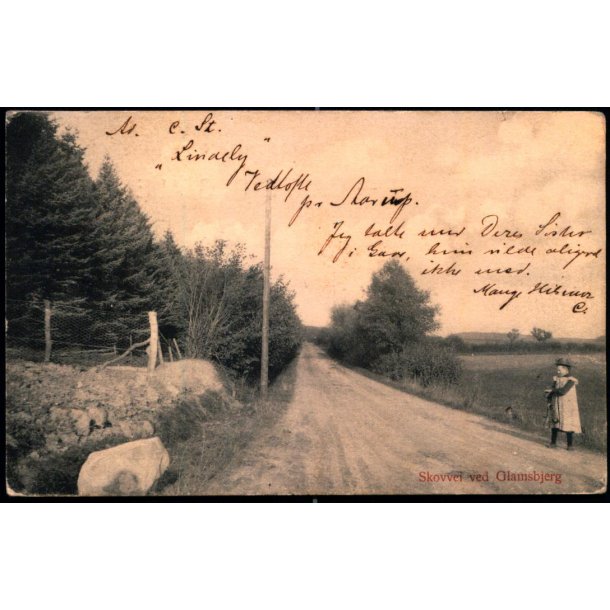 As. C. St.
"Lindely"
Vedtofte
pr Aarup.
Jeg talte med Deres Søster
i Gaar, hun vilde aligevel
ikke med.
Mange Hilsner
C.
Skovvei ved Glamsbjerg